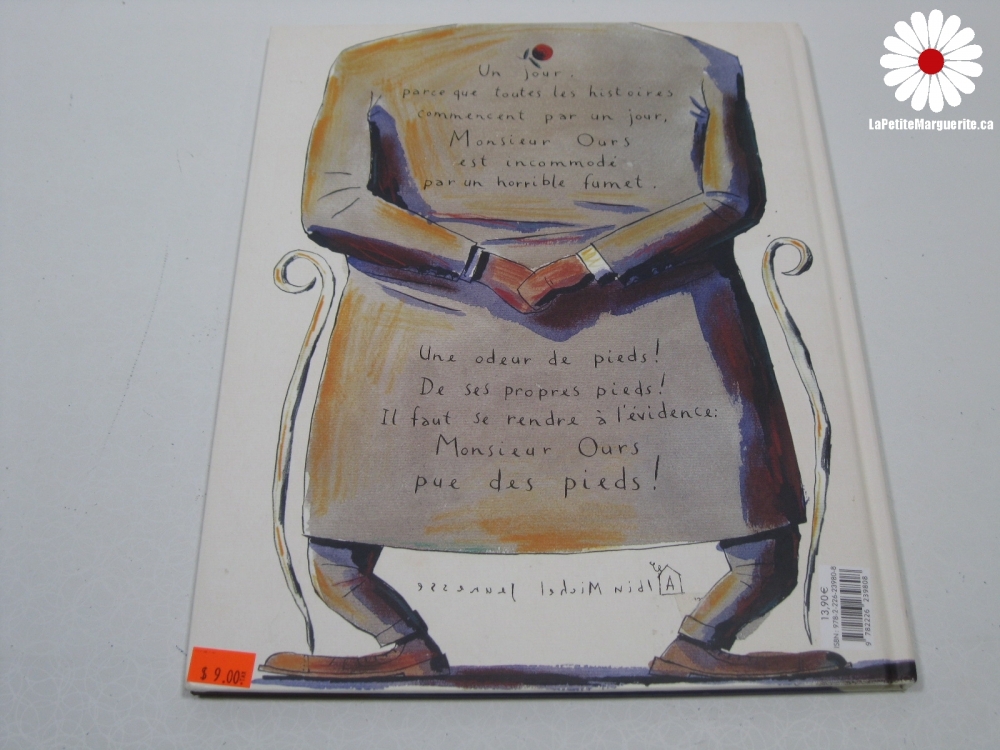 LaPetiteMarguerite.ca
Un jour.
parce que toutes les histoires
commencent par un jour,
Monsieur Ours
est incommodé
par un horrible fumet.
Une odeur de pieds!
De ses propres pieds!
Il faut se rendre à l'évidence:
Monsieur Ours
pue des pieds!
Albin Michel Jeunesse
13,90 €
ISBN : 978-2-226-23980-8
9 782226 239808
$ 9.00